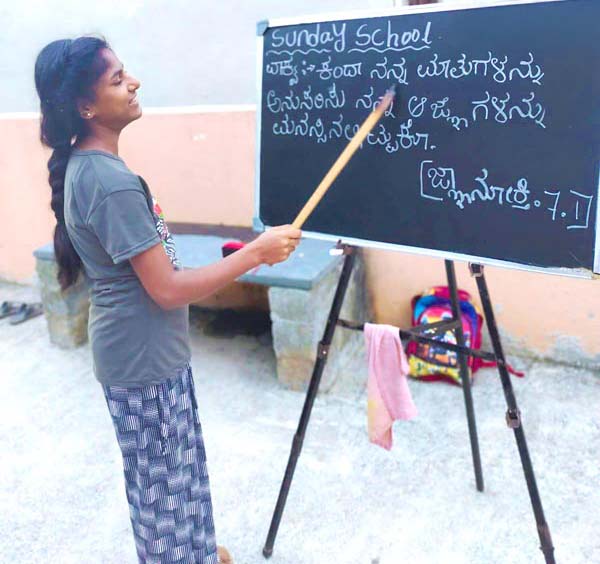 Sunday School
ವಾಕ್ಯ :-> ಕಂದಾ ನನ್ನ ಮಾತುಗಳನ್ನು
ಅನುಸರಿಸು ನನ್ನ ಆಜ್ಞೆಗಳನ್ನು
ಮನಸ್ಸಿನಲ್ಲಿಟ್ಟುಕೊ.
[ಜ್ಞಾನೋಕ್ತಿ. 7.1]